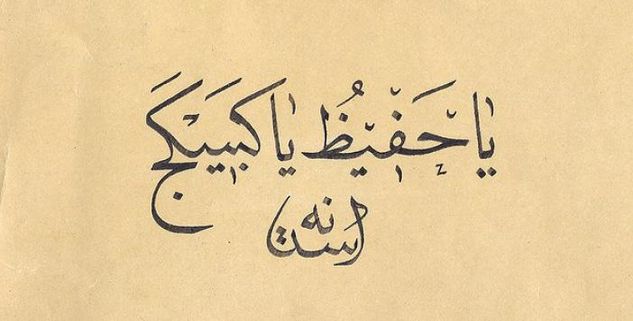 يا حفيظ يا كبيكج
استانه